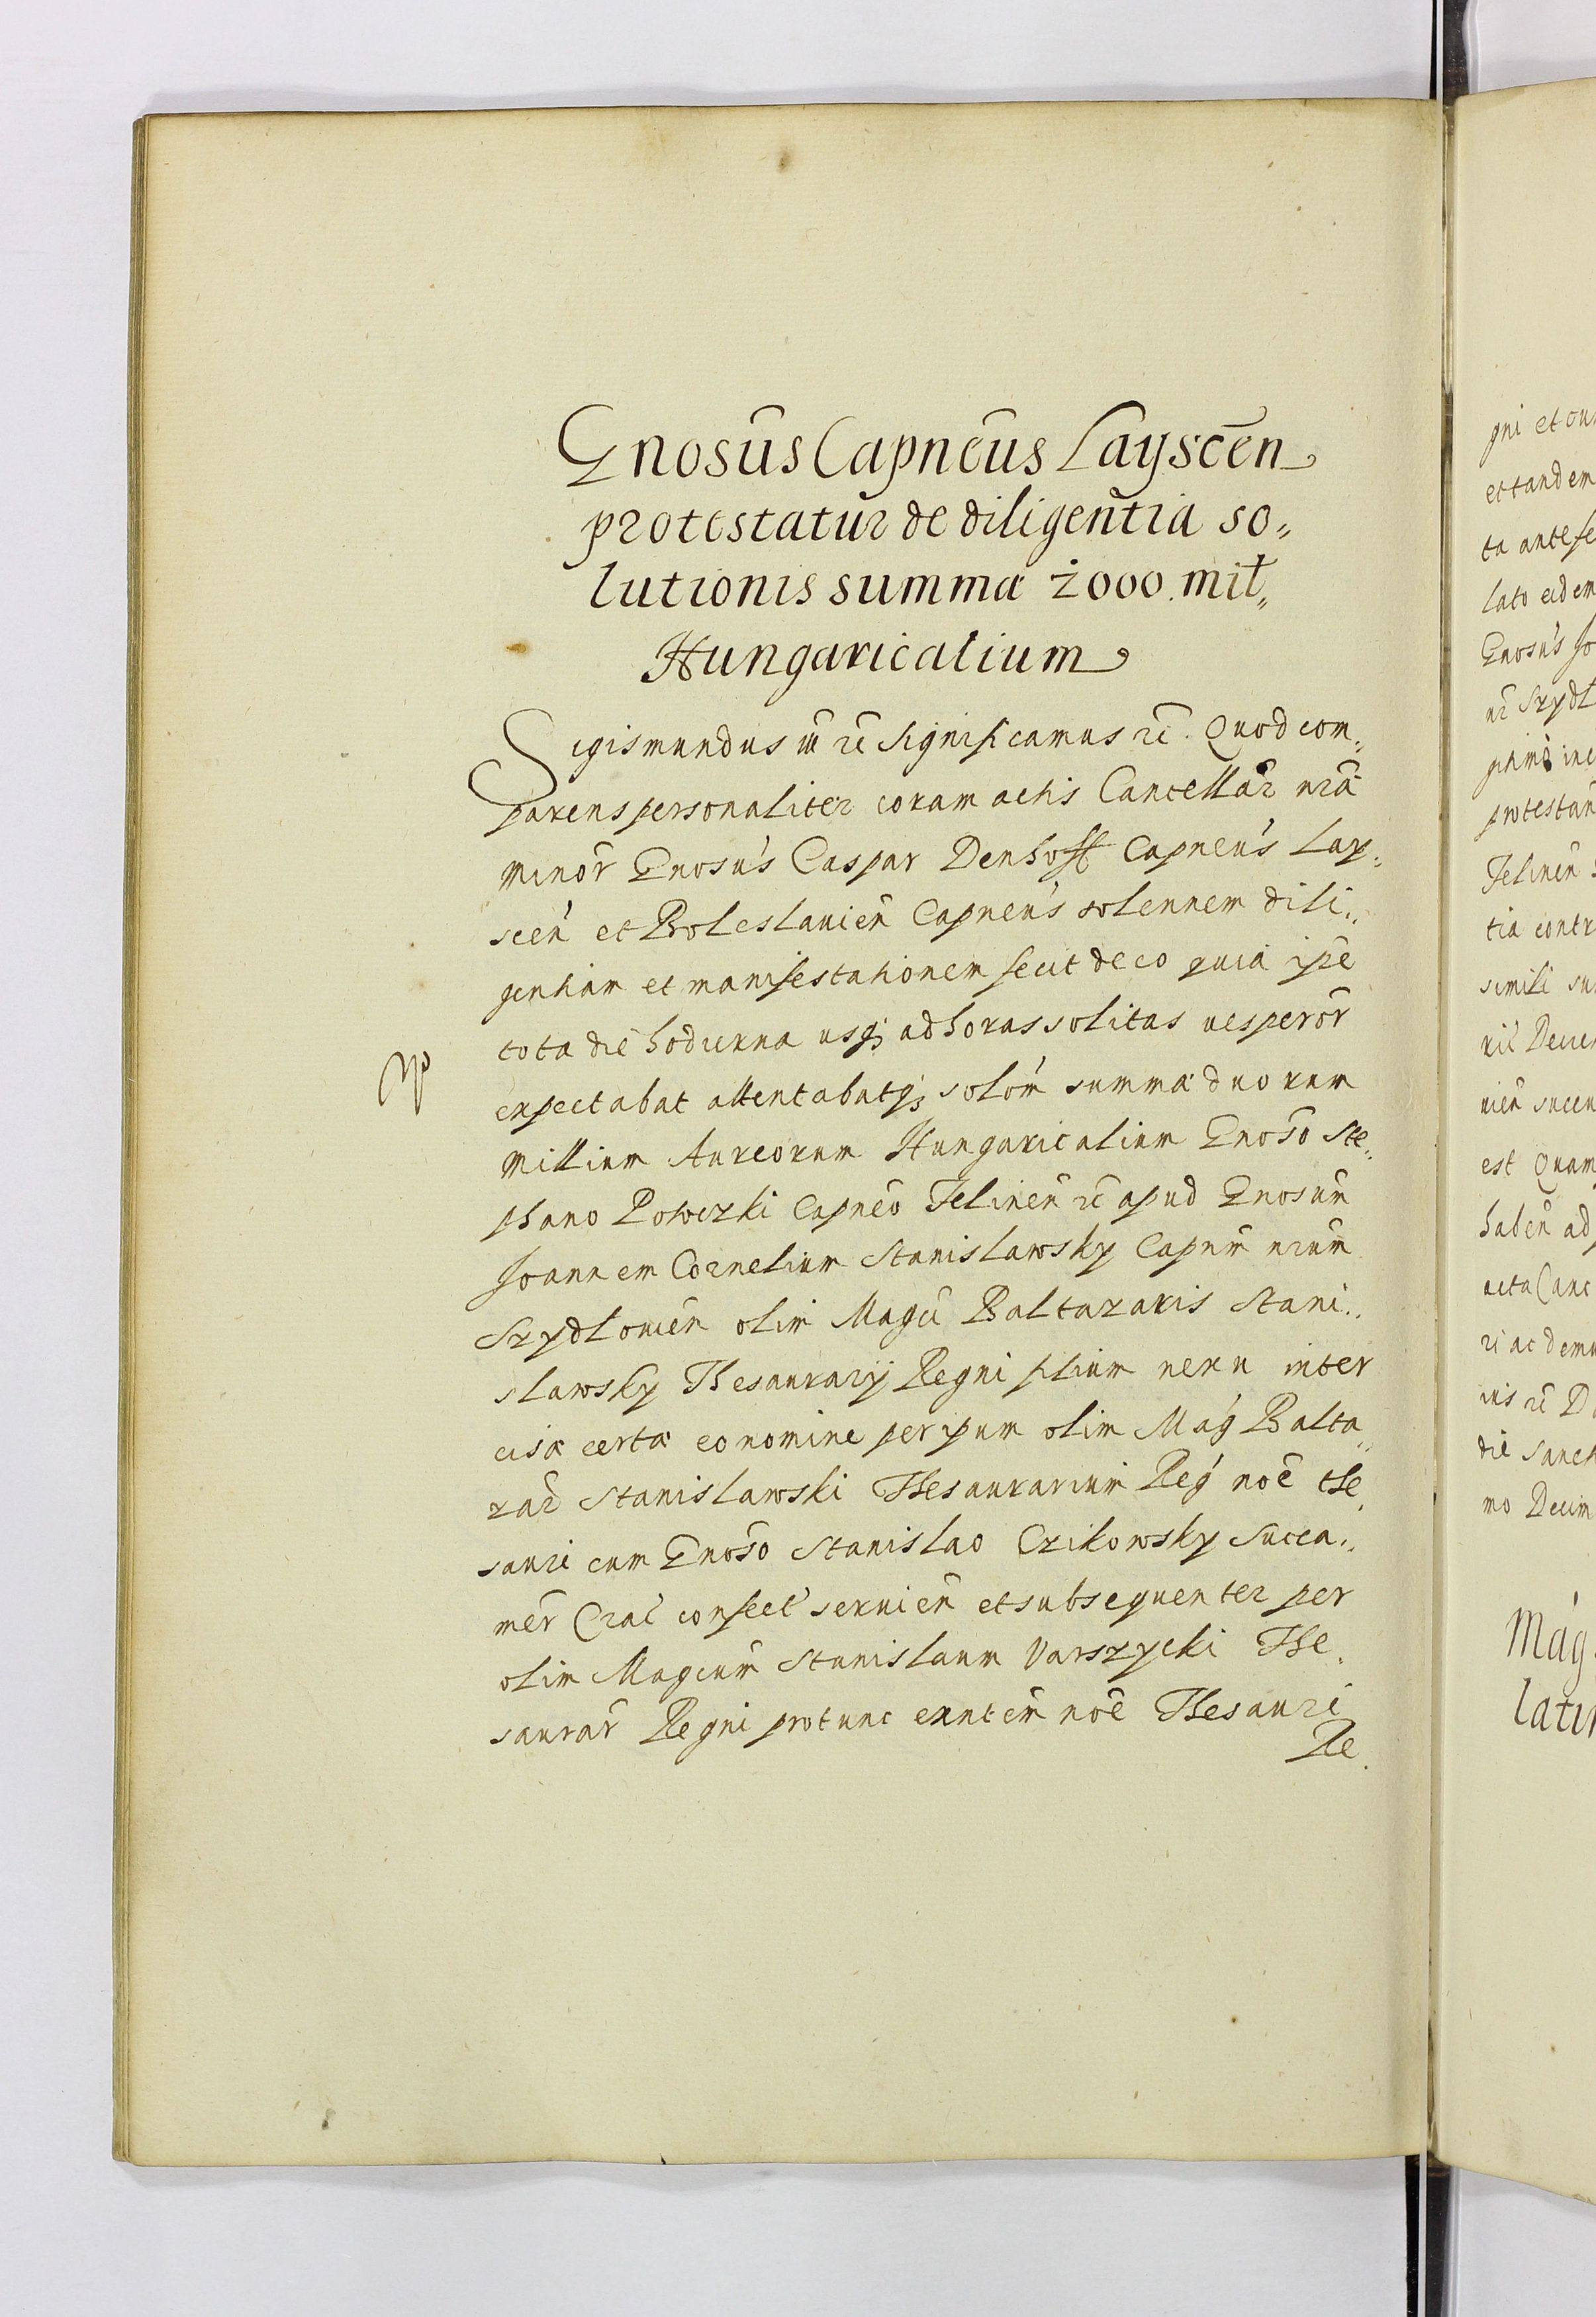 Gnosūs Capneūs Layscen̄
protestatur de diligentia so„
lutionis summæ 2000 mił„
Hungaricalium
Sigismundus iii rc̄ Significamus rc̄. Quod com„
parens personaliter coram actis Cancellar̄ nrā
minor̄ Gnosus Caspar Denhoff Capneus Lay„
scen̄ et Boleslauien̄ Capneus solennem dili„
gentiam et manifestationem fecit de eo quia ipē
tota die hodierna usq; ad horas solitas uesperor̄
expectabat attentabatq; solōm summæ duorum
Millium Aureorum Hungaricalium Gnōso Ste„
phano Potworzki Capneō Jelinen̄ rc̄ apud Gnosum̄
Joannem Cornelium Stanislawsky Capnm̄ nrūm
Szydlouien̄ olim Magci Baltazaris Stani„
slawsky Thesaurarij Regni filium nexu inter
cisæ certæ eo nomine per ipum olim Mag Balta„
zar̄ Stanislawski Thesaurarium Reg noē the„
sauri cum Gnōso Stanislao Czikowsky Succa„
mer̄ Crac̄ confect seruien̄ et subsequenter per
olim Magcum̄ Stanislaum Varszycki The„
saurar̄ Regni protunc exntēm noē Thesauri
Re

gni et on
et tandem
ta antefe
lato eidem
Gnosus Jo
nr̄ Szydł
ine
protestan
Jelinen̄
tia contr
simili su
ril Decre
nien̄ succu
est Quam
haben̄ ad
acta Canc
ri ac dem
nis rc̄ D
die Sanct
mo Decim
Mag
latin